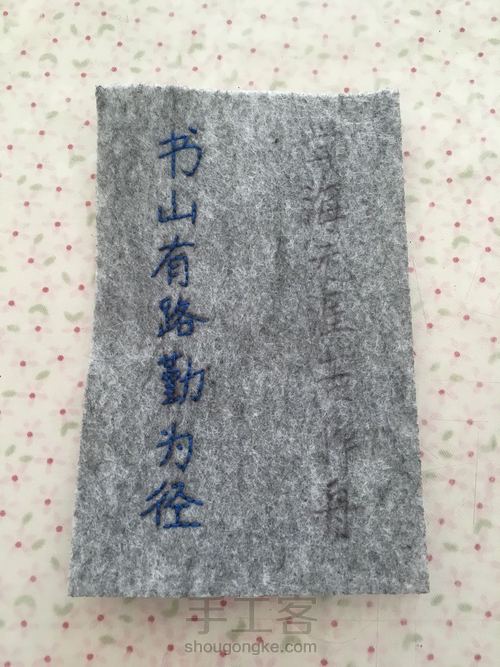 书山有路勤为径
学海无崖苦作舟
手工客
shougongke.com